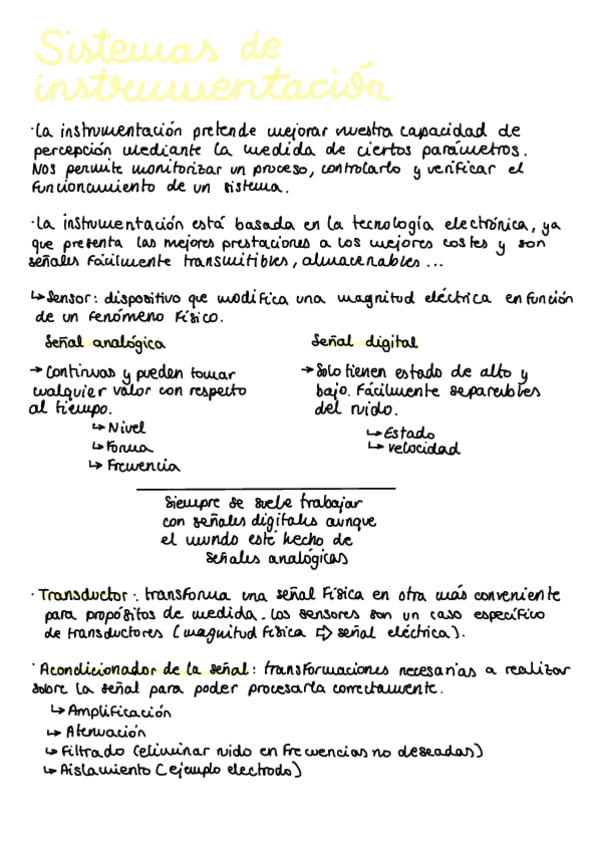 Sistemas de
instrumentación
· La instrumentación pretende mejorar nuestra capacidad de
percepción mediante la medida de ciertos parámetros.
Nos permite monitorizar un proceso, controlarlo y verificar el
funcionamiento de un sistema.
· La instrumentación está basada en la tecnología electrónica, ya
que presenta las mejores prestaciones a los mejores costes y son
señales fácilmente transmitibles, almacenables ...
↳ Sensor: dispositivo que modifica una magnitud eléctrica en función
de un fenómeno físico.
Señal analógica
→ Continuas y pueden tomar
cualquier valor con respecto
al tiempo.
↳ Nivel
↳ Forma
↳ Frecuencia
Señal digital
→ Solo tienen estado de alto y
bajo. Fácilmente separables
del ruido.
↳ Estado
↳ velocidad
Siempre se suele trabajar
con señales digitales aunque
el mundo esté hecho de
señales analógicas
· Transductor: transforma una señal física en otra más conveniente
para propósitos de medida. Los sensores son un caso específico
de transductores (magnitud física ⇨ señal eléctrica).
· Acondicionador de la señal: transformaciones necesarias a realizar
sobre la señal para poder procesarla correctamente.
↳ Amplificación
↳ Atenuación
↳ Filtrado (eliminar ruido en frecuencias no deseadas)
↳ Aislamiento (ejemplo electrodo)